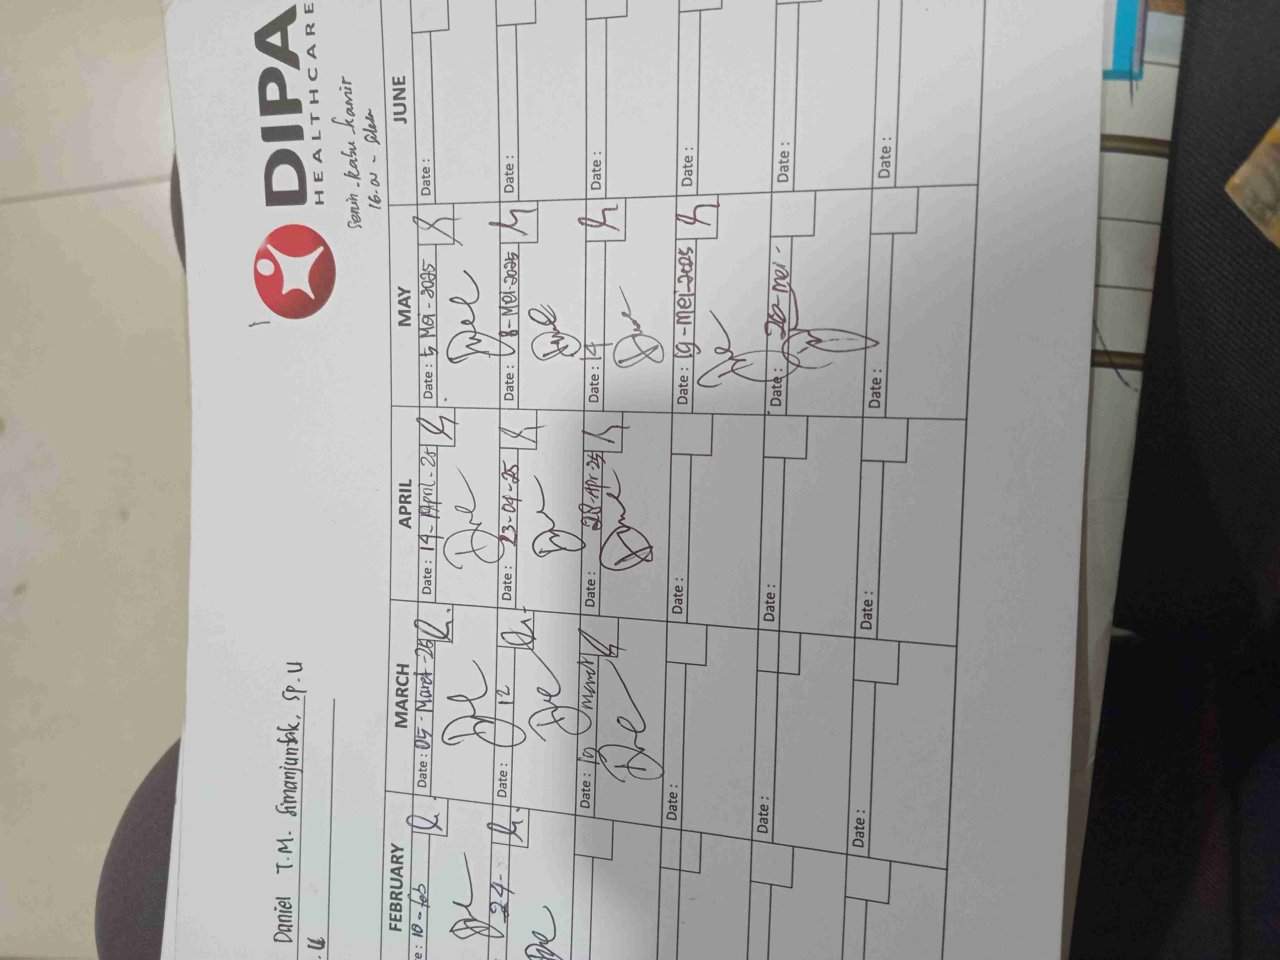 DIPA
HEALTHCARE
Senin - Rabu - Kamis
Daniel T.M. Simanjuntak, Sp.U
FEBRUARY MARCH APRIL MAY JUNE
10 - feb Date : 05 - Maret - 25 Date : 14 - April - 25 Date : 5 Mei - 2025 Date :
24 - Date : 12 Date : 23-04-25 Date : 8 - Mei - 2025 Date :
Date : 19 maret Date : 28-Apr-25 Date : 14 Date :
Date : Date : Date : 19 - Mei - 2025 Date :
Date : Date : Date : 26 - Mei - Date :
Date : Date : Date : Date :